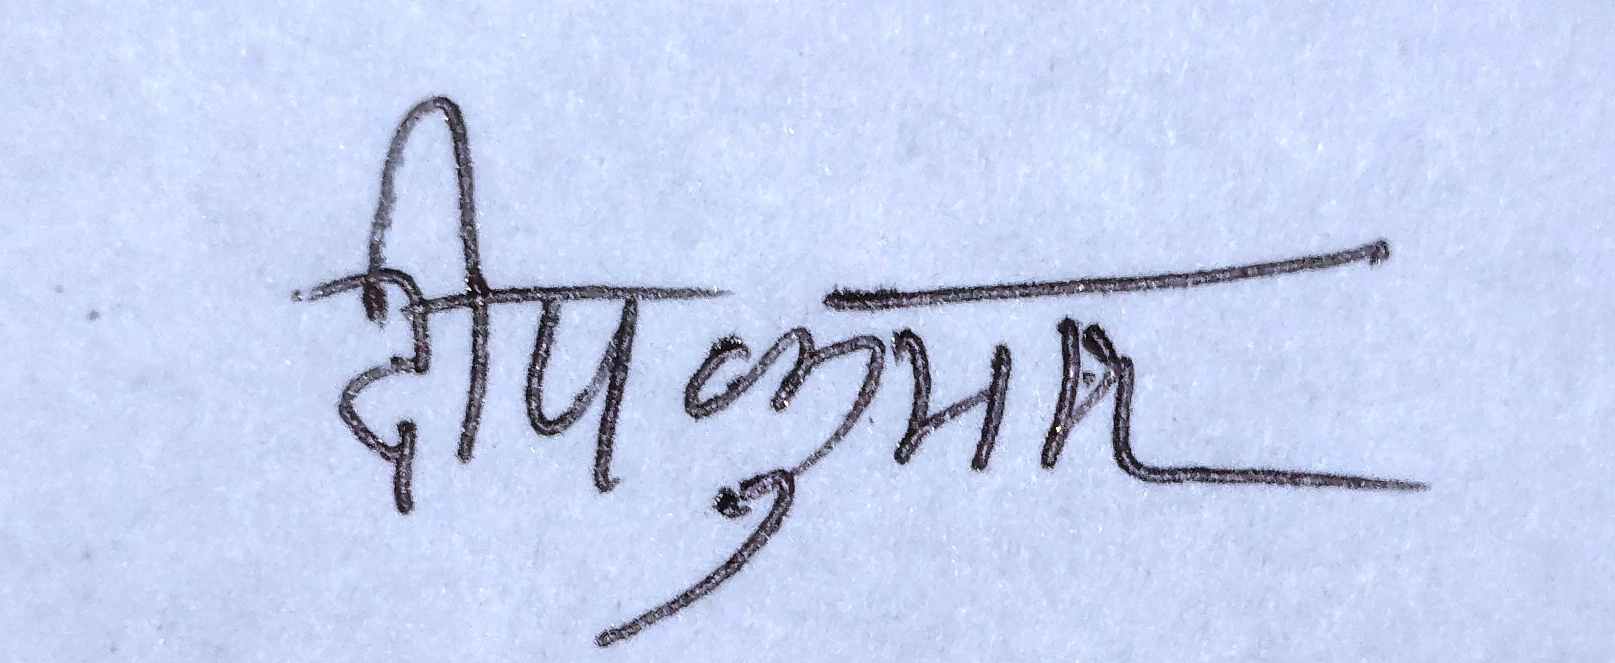 दीप कुमार